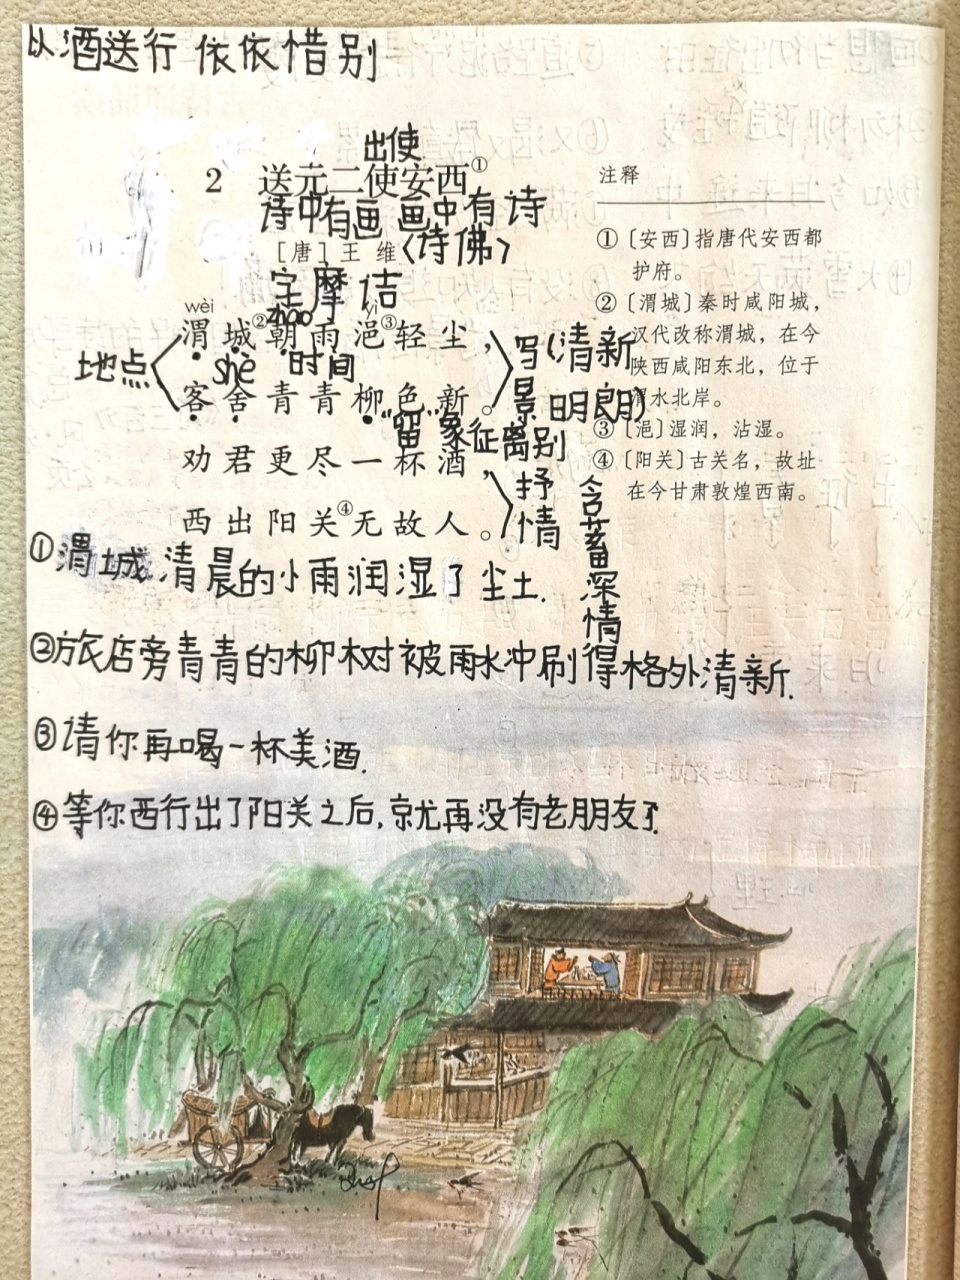 以酒送行 依依惜别
出使
2 送元二使安西①
诗中有画 画中有诗
[唐] 王 维 〈诗佛〉
字摩诘
wèi zhāo yì
渭城②朝雨浥③轻尘，
地点 shè 时间
写景(清新明朗)
客舍青青柳色新。
"留"象征离别
劝君更尽一杯酒，
西出阳关④无故人。
抒情
含蓄深情
注释
①〔安西〕指唐代安西都
护府。
②〔渭城〕秦时咸阳城，
汉代改称渭城，在今
陕西咸阳东北，位于
渭水北岸。
③〔浥〕湿润，沾湿。
④〔阳关〕古关名，故址
在今甘肃敦煌西南。
①渭城清晨的小雨润湿了尘土.
②旅店旁青青的柳树被雨水冲刷得格外清新.
③请你再喝一杯美酒.
④等你西行出了阳关之后,就再没有老朋友了.